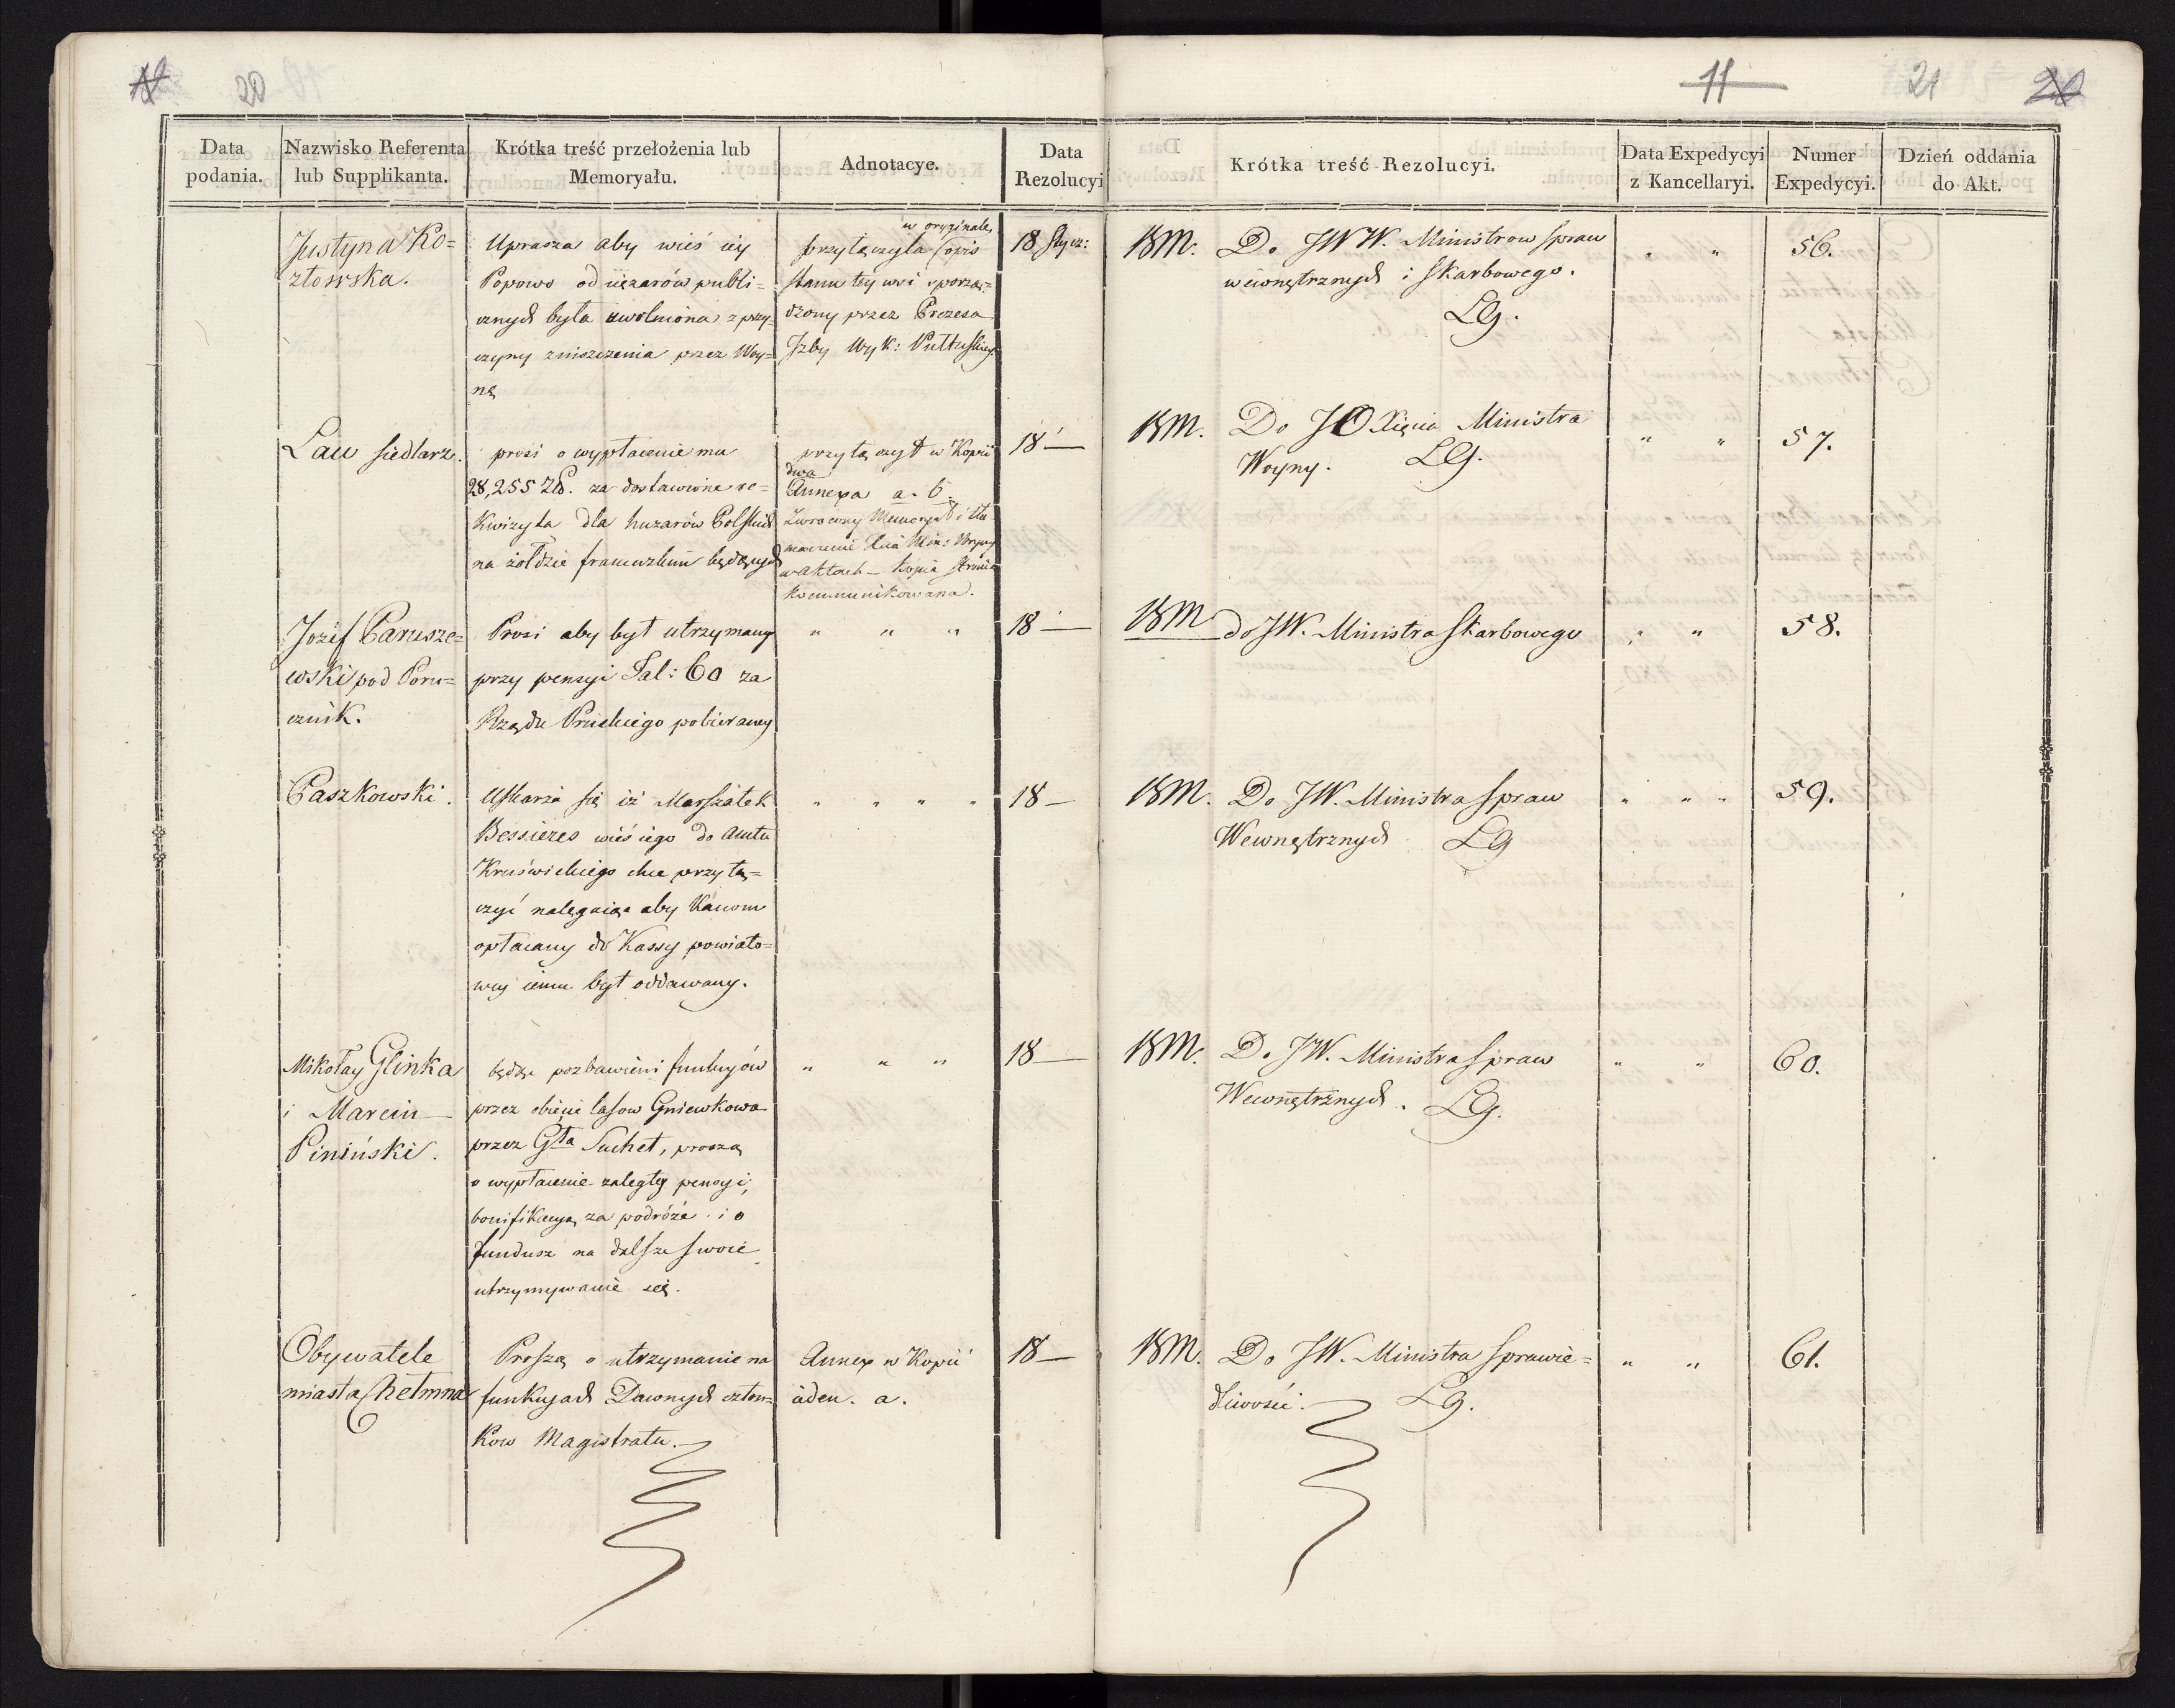 20
11 21 20
Data podania.
Nazwisko Referenta lub Supplikanta.
Krótka treść przełożenia lub Memoryału.
Adnotacye.
Data Rezolucyi
Krótka treść Rezolucyi.
Data Expedycyi z Kancellaryi.
Numer Expedycyi.
Dzień oddania do Akt.
Justyna Ko=
złowska.
Uprasza aby wieś iey
Popowo od ciężarów publi=
cznych była uwolniona z przy=
czyny zniszczenia przez Woy=
nę
w oryginale
przyłączyła opis
stanu tey wsi sporzą=
dzony przez Prezesa
Izby Wyk: Pułtuskiey
18 Stycz:
BM. Do JWW. Ministrow Spraw
wewnętrznych i Skarbowego.
LG.
" "
56.
Lau siedlarz.
prosi o wypłacenie mu
28,255 Zł. za dostawione re=
kwizyta dla huzarów Polskich
na żołdzie francuzkim będących
przyłączył w Kopii
dwa
Annexa a. b.
Zwrocony Memoryał i tłu
maczenie Xcia Min: Woyny
w aktach — kopia
kommunikowana.
18 —
BM. Do JO Xięcia Ministra
Woyny. LG.
" "
57.
Jozef Parusze=
wski pod Poru=
cznik.
Prosi aby był utrzymany
przy pensyi Tal: 60 za
Rządu Pruskiego pobieraney
" " "
18 —
BM do JW. Ministra Skarbowego
" "
58.
Paszkowski.
Uskarża się iż Marszałek
Bessieres wieś iego do Amtu
Kruświckiego chce przyłą=
czyć nalegaiąc aby Kanon
opłacany do Kassy powiato=
wey iemu był oddawany.
" " " "
18 —
BM. Do JW. Ministra Spraw
Wewnętrznych LG
" " "
59.
Mikołay Glinka
i Marcin
Piniński.
będąc pozbawieni funkcyów
przez obięcie lasow Gniewkowa
przez Gła Suchet, proszą
o wypłacenie zaległey pensyi,
bonifikacyą za podróże i o
fundusz na dalsze swoie
utrzymywanie się.
" " "
18 —
BM. Do JW. Ministra Spraw
Wewnętrznych. LG.
" "
60.
Obywatele
miasta Chełmna
Proszą o utrzymanie na
funkcyach Dawnych człon=
kow Magistratu.
Annex w Kopii
aden. a.
18 —
BM. Do JW. Ministra Sprawie=
dliwości. LG.
" "
61.